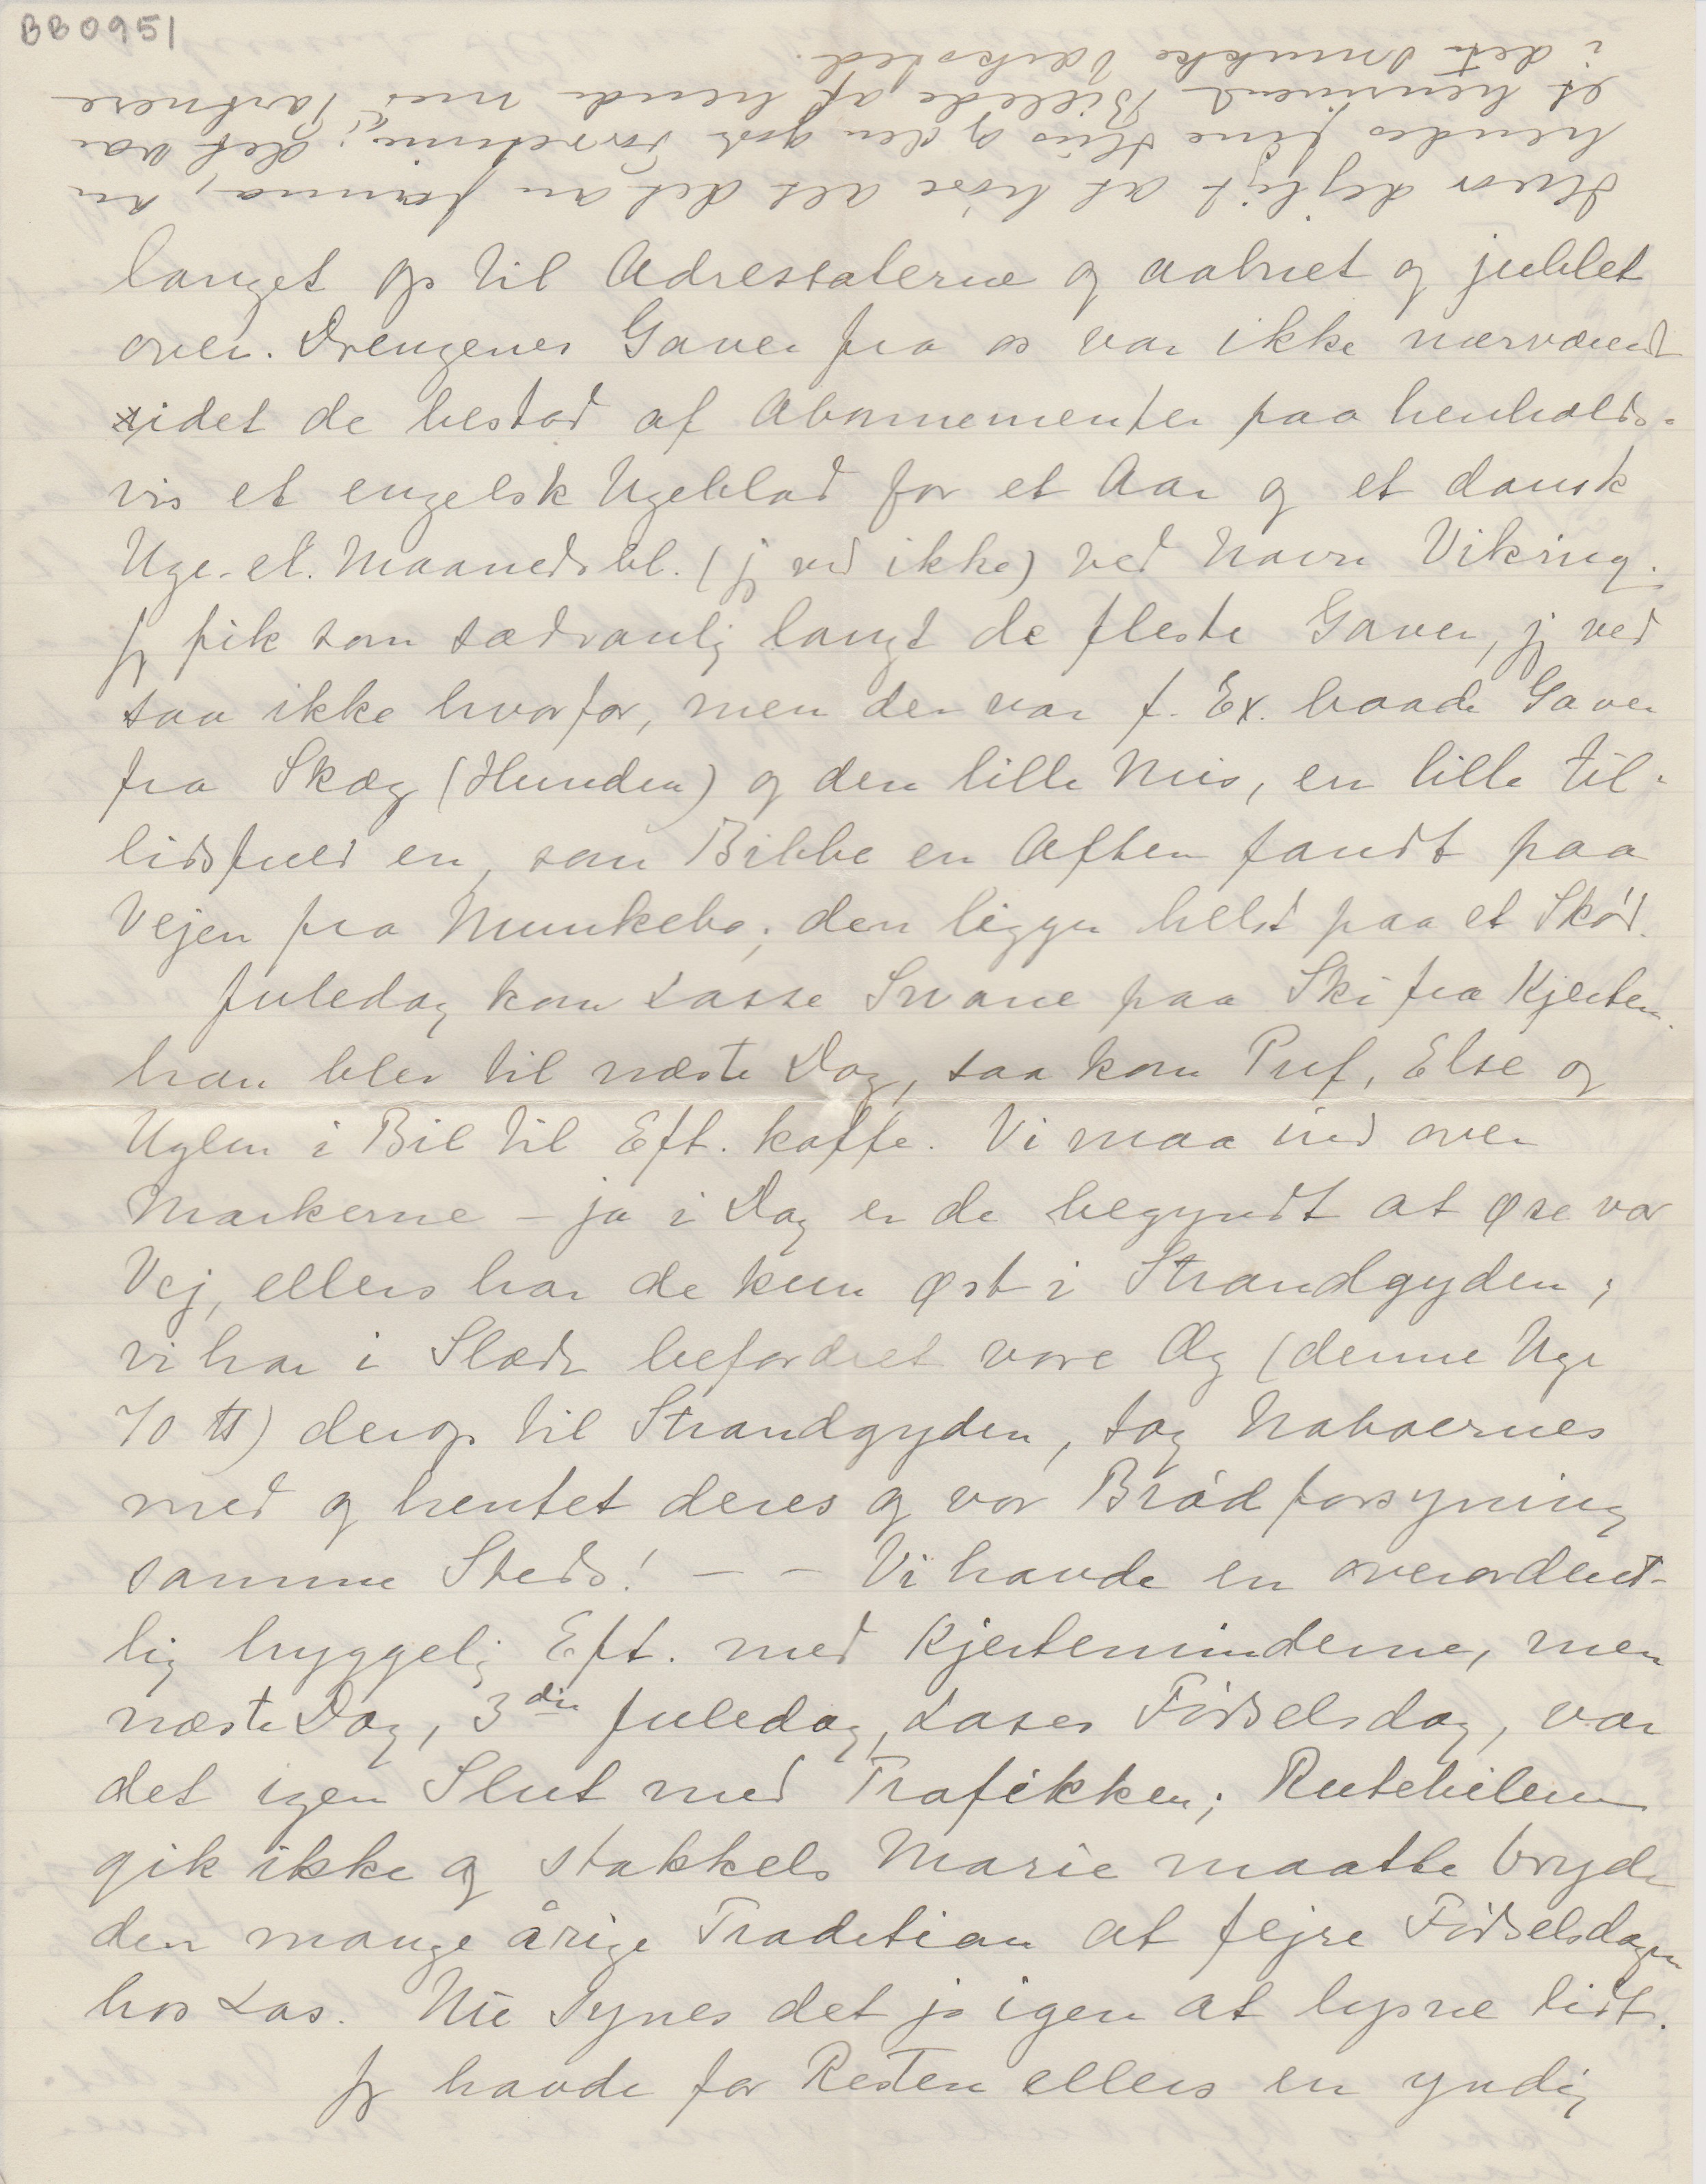 BB0951
Hvor dejligt at høre alt det om Janna, om
hendes fine Hus og den gode Forretning; det var
et henrivende Billede af hende med Partnere
i det smukke Værksted.
langet op til Adressaterne og aabnet og jublet
over. Drengenes Gaver fra os var ikke nærværend
idet de bestod af Abonnementer paa henholds-
vis et engelsk Ugeblad for et Aar og et dansk
Uge- el. Maanedsbl. (jg ved ikke) ved Navn Viking.
Jg fik som sædvanlig langt de fleste Gaver, jg ved
saa ikke hvorfor, men der var f. Ex. baade Gaver
fra Skæg (Hunden) og den lille Mis, en lille til-
lidsfuld en, som Bibbe en Aften fandt paa
Vejen fra Munkebo; den ligger helst paa et Skød.
Juledag kom Lasse Swane paa Ski fra Kjertem.
han blev til næste Dag, saa kom Puf, Else og
Uglen i Bil til Eft. kaffe. Vi maa ind over
Markerne – ja i Dag er de begyndt at øse vor
Vej, ellers har de kun øst i Strandgyden;
vi har i Slæde befordret vore Æg (denne Uge
70 ℔) derop til Strandgyden, tog Naboernes
med og hentet deres og vor Brødforsyning
samme Steds! – – Vi havde en overordent-
lig hyggelig Eft. med Kjerteminderne, men
næste Dag, 3die Juledag, Lases Fødselsdag, var
det igen Slut med Trafikken; Rutebilerne
gik ikke og stakkels Marie maatte bryde
den mange årige Tradition at fejre Fødselsdagen
hos Las. Nu synes det jo igen at lysne lidt.
Jg havde for Resten ellers en yndig